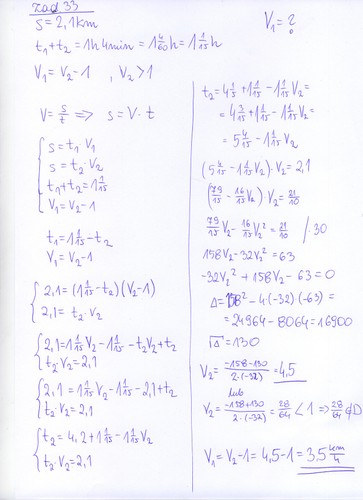 zad 33
s = 2,1km
t₁+t₂ = 1h 4min = 1 4/60 h = 1 1/15 h
V₁ = V₂-1 , V₂>1
V = s/t => s = V·t
s = t₁·V₁
s = t₂·V₂
t₁+t₂ = 1 1/15
V₁ = V₂-1
t₁ = 1 1/15 - t₂
V₁ = V₂-1
2,1 = (1 1/15 - t₂)(V₂-1)
2,1 = t₂·V₂
2,1 = 1 1/15 V₂ - 1 1/15 - t₂V₂ + t₂
t₂·V₂ = 2,1
2,1 = 1 1/15 V₂ - 1 1/15 - 2,1 + t₂
t₂·V₂ = 2,1
t₂ = 4,2 + 1 1/15 - 1 1/15 V₂
t₂·V₂ = 2,1
V₁ = ?
t₂ = 4 1/5 + 1 1/15 - 1 1/15 V₂ =
= 4 3/15 + 1 1/15 - 1 1/15 V₂ =
= 5 4/15 - 1 1/15 V₂
(5 4/15 - 1 1/15 V₂)·V₂ = 2,1
(79/15 - 16/15 V₂)·V₂ = 21/10
79/15 V₂ - 16/15 V₂² = 21/10 /·30
158V₂ - 32V₂² = 63
-32V₂² + 158V₂ - 63 = 0
Δ = 158² - 4·(-32)·(-63) =
= 24964 - 8064 = 16900
√Δ = 130
V₂ = -158-130 / 2·(-32) = 4,5
lub
V₂ = -158+130 / 2·(-32) = 28/64 < 1 => 28/64 ∉ D
V₁ = V₂-1 = 4,5-1 = 3,5 km/h